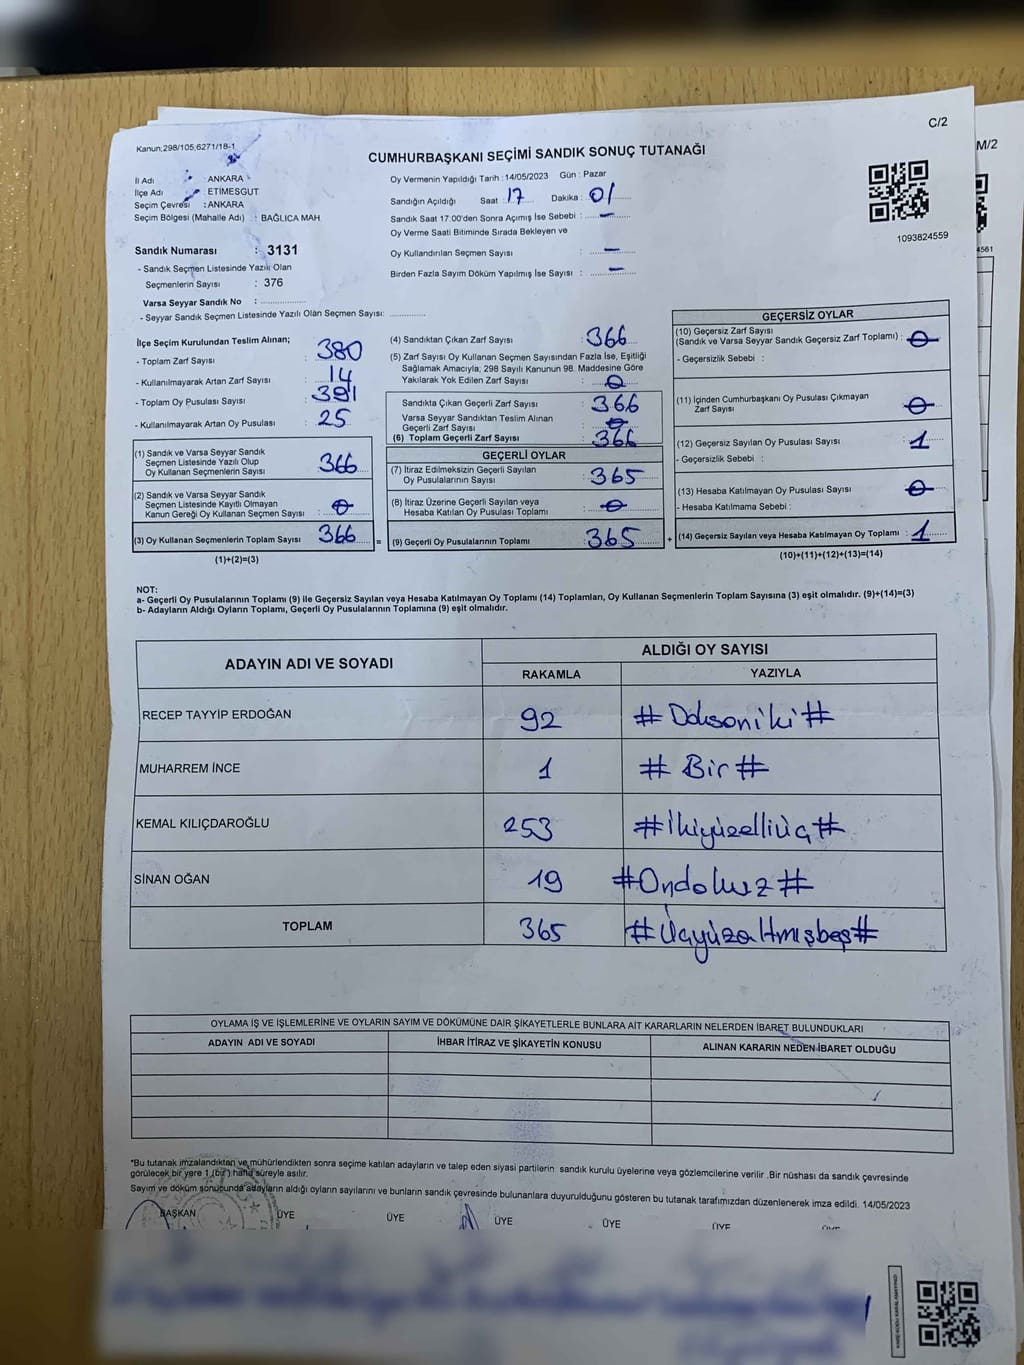 C/2
M/2
Kanun:298/105,6271/18-1
CUMHURBAŞKANI SEÇİMİ SANDIK SONUÇ TUTANAĞI
İl Adı : ANKARA
İlçe Adı : ETİMESGUT
Seçim Çevresi : ANKARA
Seçim Bölgesi (Mahalle Adı) : BAĞLICA MAH
Oy Vermenin Yapıldığı Tarih : 14/05/2023 Gün : Pazar
Sandığın Açıldığı Saat : 17 Dakika : 01
Sandık Saat 17:00'den Sonra Açımış İse Sebebi : —
Oy Verme Saati Bitiminde Sırada Bekleyen ve
Oy Kullandırılan Seçmen Sayısı : —
Birden Fazla Sayım Döküm Yapılmış İse Sayısı : —
1093824559
4561
Sandık Numarası : 3131
- Sandık Seçmen Listesinde Yazılı Olan
Seçmenlerin Sayısı : 376
Varsa Seyyar Sandık No :
- Seyyar Sandık Seçmen Listesinde Yazılı Olan Seçmen Sayısı:
İlçe Seçim Kurulundan Teslim Alınan;
- Toplam Zarf Sayısı : 380
- Kullanılmayarak Artan Zarf Sayısı : 14
- Toplam Oy Pusulası Sayısı : 391
- Kullanılmayarak Artan Oy Pusulası : 25
(1) Sandık ve Varsa Seyyar Sandık
Seçmen Listesinde Yazılı Olup
Oy Kullanan Seçmenlerin Sayısı : 366
(2) Sandık ve Varsa Seyyar Sandık
Seçmen Listesinde Kayıtlı Olmayan
Kanun Gereği Oy Kullanan Seçmen Sayısı : 0
(3) Oy Kullanan Seçmenlerin Toplam Sayısı 366 =
(1)+(2)=(3)
(4) Sandıktan Çıkan Zarf Sayısı : 366
(5) Zarf Sayısı Oy Kullanan Seçmen Sayısından Fazla İse, Eşitliği
Sağlamak Amacıyla; 298 Sayılı Kanunun 98. Maddesine Göre
Yakılarak Yok Edilen Zarf Sayısı : 0
Sandıkta Çıkan Geçerli Zarf Sayısı : 366
Varsa Seyyar Sandıktan Teslim Alınan
Geçerli Zarf Sayısı : 0
(6) Toplam Geçerli Zarf Sayısı : 366
GEÇERLİ OYLAR
(7) İtiraz Edilmeksizin Geçerli Sayılan
Oy Pusulalarının Sayısı : 365
(8) İtiraz Üzerine Geçerli Sayılan veya
Hesaba Katılan Oy Pusulası Toplamı : 0
(9) Geçerli Oy Pusulalarının Toplamı : 365 +
GEÇERSİZ OYLAR
(10) Geçersiz Zarf Sayısı
(Sandık ve Varsa Seyyar Sandık Geçersiz Zarf Toplamı) : 0
- Geçersizlik Sebebi :
(11) İçinden Cumhurbaşkanı Oy Pusulası Çıkmayan
Zarf Sayısı : 0
(12) Geçersiz Sayılan Oy Pusulası Sayısı : 1
- Geçersizlik Sebebi :
(13) Hesaba Katılmayan Oy Pusulası Sayısı : 0
- Hesaba Katılmama Sebebi :
(14) Geçersiz Sayılan veya Hesaba Katılmayan Oy Toplamı : 1
(10)+(11)+(12)+(13)=(14)
NOT:
a- Geçerli Oy Pusulalarının Toplamı (9) ile Geçersiz Sayılan veya Hesaba Katılmayan Oy Toplamı (14) Toplamları, Oy Kullanan Seçmenlerin Toplam Sayısına (3) eşit olmalıdır. (9)+(14)=(3)
b- Adayların Aldığı Oyların Toplamı, Geçerli Oy Pusulalarının Toplamına (9) eşit olmalıdır.
ADAYIN ADI VE SOYADI ALDIĞI OY SAYISI
RAKAMLA YAZIYLA
RECEP TAYYİP ERDOĞAN 92 #Doksaniki#
MUHARREM İNCE 1 #Bir#
KEMAL KILIÇDAROĞLU 253 #İkiyüzelliüç#
SİNAN OĞAN 19 #Ondokuz#
TOPLAM 365 #Üçyüzaltmışbeş#
OYLAMA İŞ VE İŞLEMLERİNE VE OYLARIN SAYIM VE DÖKÜMÜNE DAİR ŞİKAYETLERLE BUNLARA AİT KARARLARIN NELERDEN İBARET BULUNDUKLARI
ADAYIN ADI VE SOYADI İHBAR İTİRAZ VE ŞİKAYETİN KONUSU ALINAN KARARIN NEDEN İBARET OLDUĞU
*Bu tutanak imzalandıktan ve mühürlendikten sonra seçime katılan adayların ve talep eden siyasi partilerin sandık kurulu üyelerine veya gözlemcilerine verilir .Bir nüshası da sandık çevresinde
görülecek bir yere 1 (bir) hafta süreyle asılır.
Sayım ve döküm sonucunda adayların aldığı oyların sayılarını ve bunların sandık çevresinde bulunanlara duyurulduğunu gösteren bu tutanak tarafımızdan düzenlenerek imza edildi. 14/05/2023
BAŞKAN ÜYE ÜYE ÜYE ÜYE ÜYE